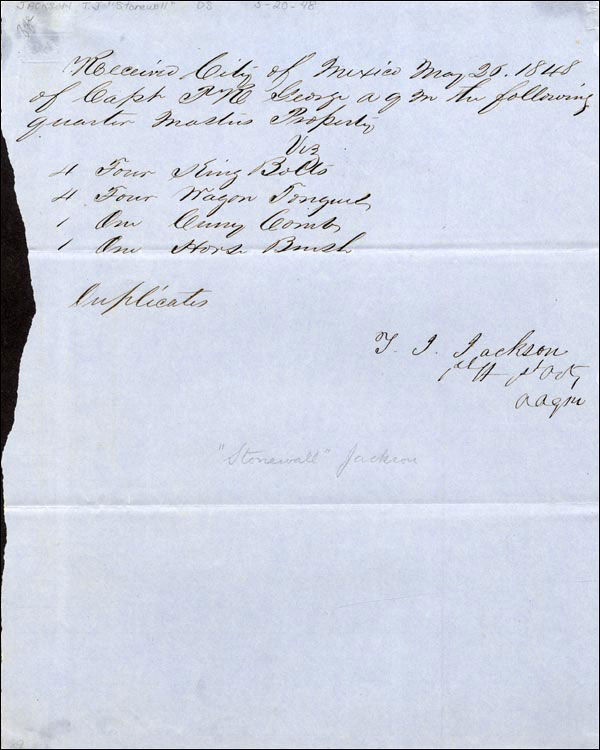 JACKSON T.J. "Stonewall" DS 5-20-48
Received City of Mexico May 20. 1848
of Capt P M George a q m the following
quarter Masters Property
Viz
4 Four King Bolts
4 Four Wagon Tongues
1 One Curry Comb
1 One Horse Brush
Duplicates
T. J. Jackson
1st Lt 1st Art,
a a q m
"Stonewall" Jackson